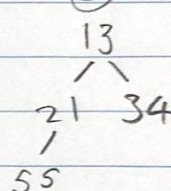 13
21 34
55